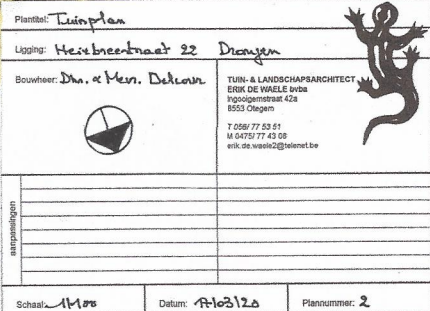 Plantitel: Tuinplan
Ligging: Heirbreestraat 22 Drongen
Bouwheer: Dhr. & Mevr.
TUIN- & LANDSCHAPSARCHITECT
ERIK DE WAELE bvba
Ingooigemstraat 42a
8553 Otegem
T 056/ 77 53 51
M 0475/ 77 43 08
erik.de.waele2@telenet.be
aanpassingen
Schaal: 1/100
Datum: /03/20
Plannummer: 2